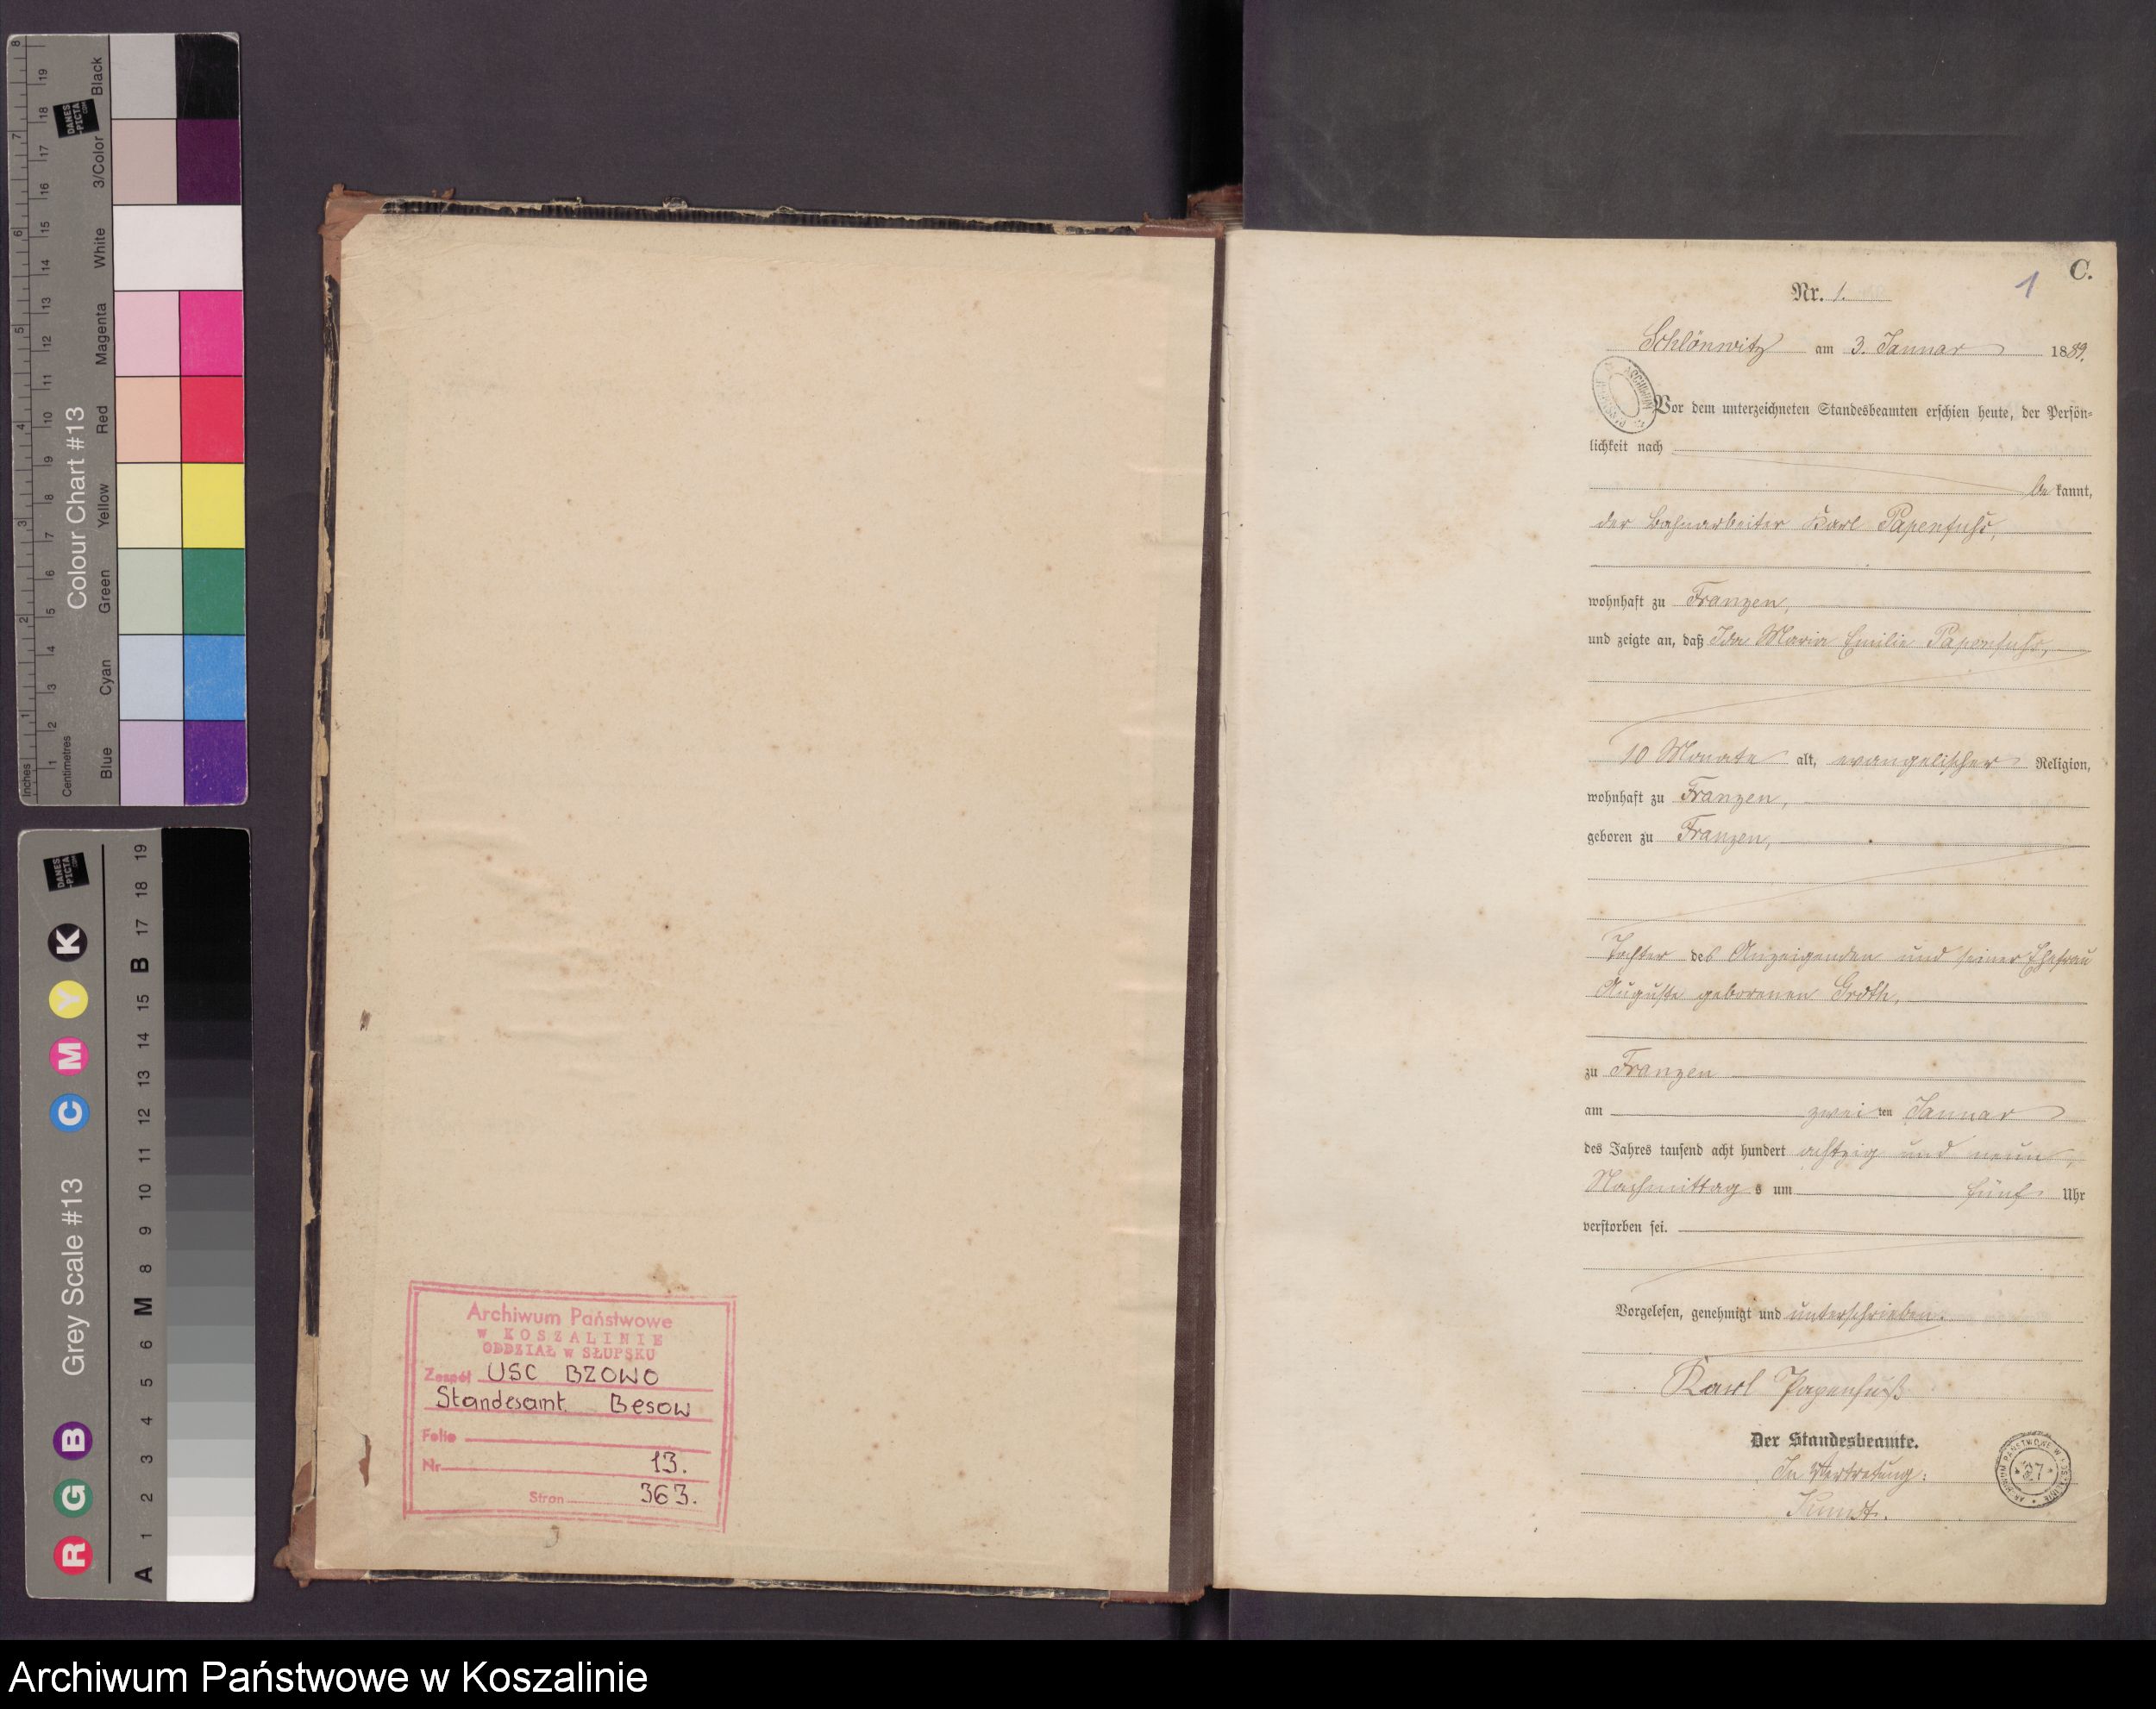 Inches
Centimetres
Colour Chart #13
Blue
Cyan
Green
Yellow
Red
Magenta
White
3/Color
Black
DANES
-PICTA
.COM
1 2 3 4 5 6 7 8
1 2 3 4 5 6 7 8 9 10 11 12 13 14 15 16 17 18 19
Grey Scale #13
R G B
C M Y K
DANES
-PICTA
.COM
A 1 2 3 4 5 6 M 8 9 10 11 12 13 14 15 B 17 18 19
Archiwum Państwowe
w KOSZALINIE
ODDZIAŁ w SŁUPSKU
Zespół USC BZOWO
Standesamt Besow
Folio
Nr 13.
Stron 363.
C.
1
Nr. 1.
Schlönwitz am 3. Januar 1889.
Vor dem unterzeichneten Standesbeamten erschien heute, der Persön-
lichkeit nach
be kannt,
der Bahnarbeiter Karl Papenfuhs,
wohnhaft zu Franzen,
und zeigte an, daß Ida Maria Emilie Papenfuhs,
10 Monate alt, evangelischer Religion,
wohnhaft zu Franzen,
geboren zu Franzen,
Tochter des Anzeigenden und seiner Ehefrau
Auguste geborenen Groth,
zu Franzen
am zwei ten Januar
des Jahres tausend acht hundert achtzig und neun,
Nachmittag s um fünf Uhr
verstorben sei.
Vorgelesen, genehmigt und unterschrieben.
Karl Papenfuß
Der Standesbeamte.
In Vertretung:
Archiwum Państwowe w Koszalinie